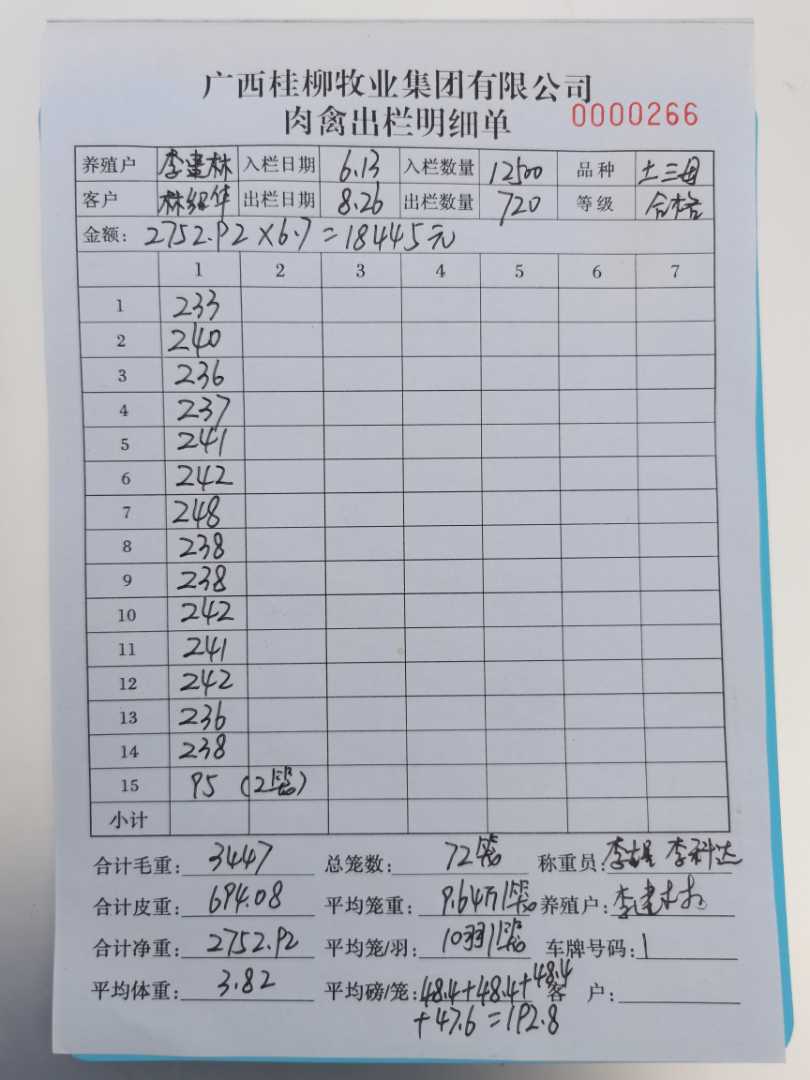 广西桂柳牧业集团有限公司
肉禽出栏明细单 0000266
养殖户 李建林 入栏日期 6.13 入栏数量 12500 品种 土三母
客户 林绍华 出栏日期 8.26 出栏数量 720 等级 合格
金额: 2752.92×6.7=18445元
1 2 3 4 5 6 7
1 233
2 240
3 236
4 237
5 241
6 242
7 248
8 238
9 238
10 242
11 241
12 242
13 236
14 238
15 95 (2笼)
小计
合计毛重: 3447 总笼数: 72笼 称重员: 李 李科达
合计皮重: 694.08 平均笼重: 9.64 笼 养殖户: 李建林
合计净重: 2752.92 平均笼/羽: 10羽/笼 车牌号码:
平均体重: 3.82 平均磅/笼: 48.4+48.4+48.4 客 户:
+47.6=192.8